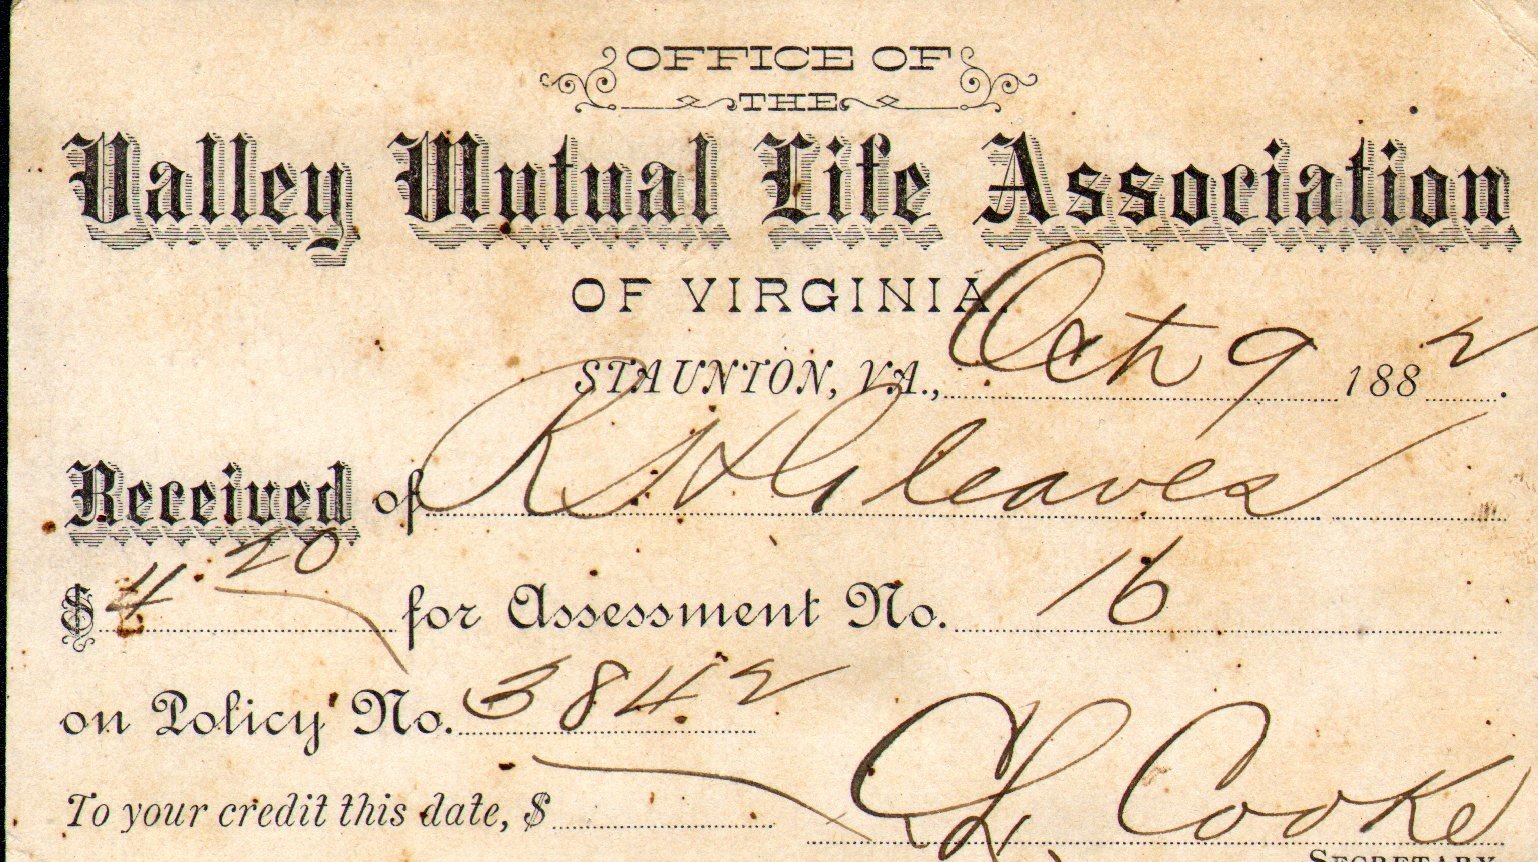 OFFICE OF
THE
Valley Mutual Life Association
OF VIRGINIA.
STAUNTON, VA., Oct 9 1882.
Received of R H Gleaves
$4 20 for Assessment No. 16
on Policy No. 3842
To your credit this date, $
C L Cooke
SECRETARY